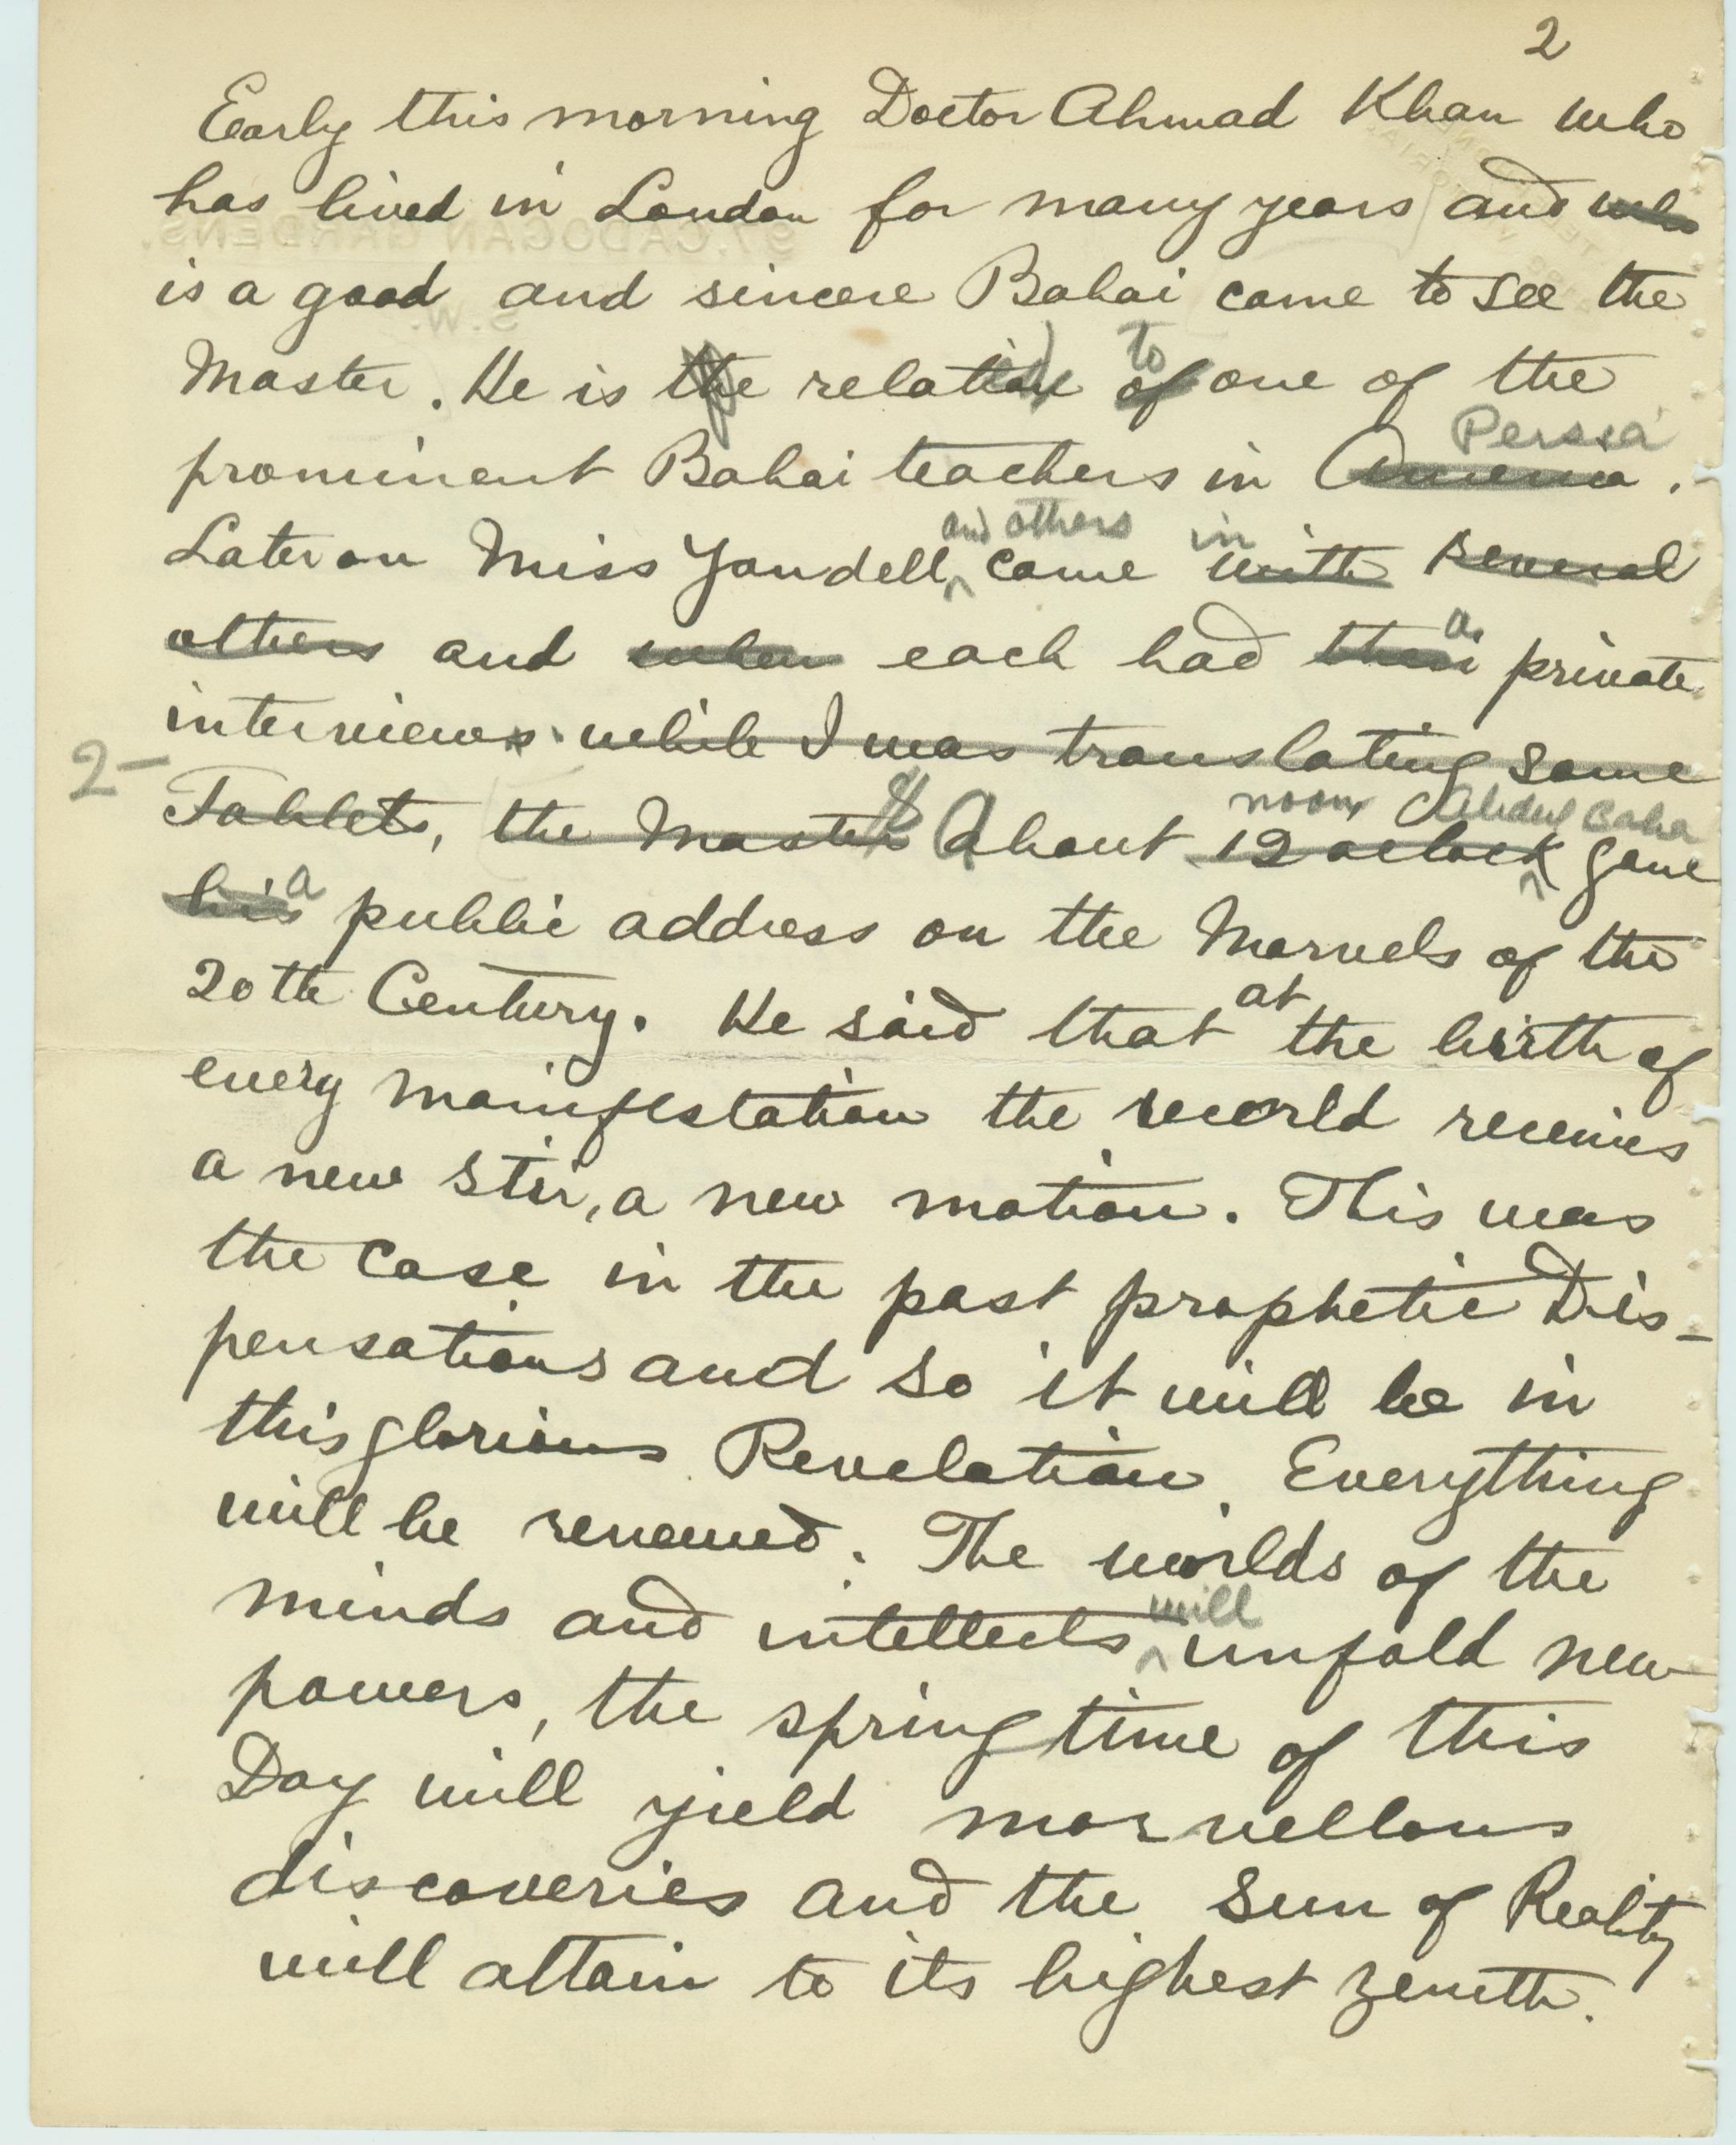 2
Early this morning Doctor Ahmad Khan who
has lived in London for many years and who
is a good and sincere Bahai came to see the
Master. He is the related to of one of the
Persia
prominent Bahai teachers in America.
and others in
Later on Miss Yandell, came with several
others and when each had their a private
interviews while I was translating some
2-
noon Abdul Baha
Tablets, the Master About 12 oclock gave
his a public address on the Marvels of the
20th Century. He said that at the birth of
every mainfestation the world receives
a new stir, a new motion. This was
the case in the past prophetic Dis-
pensations and so it will be in
this glorious Revelation. Everything
will be renewed. The worlds of the
will
minds and intellects unfold new
powers, the spring time of this
Day will yield marvellous
discoveries and the Sun of Reality
will attain to its highest zenith.
97, CADOGAN GARDENS.
S.W.